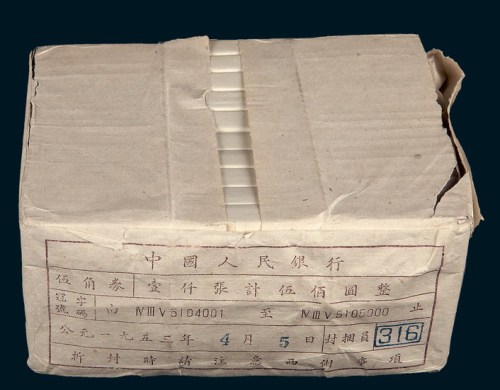 中國人民銀行
伍角券 壹仟張計伍佰圓整
冠字號碼 由 ⅣⅢⅤ5104001 至 ⅣⅢⅤ5105000 止
公元一九五三年 4月 5日封捆員 316
拆封時請注意 側事項